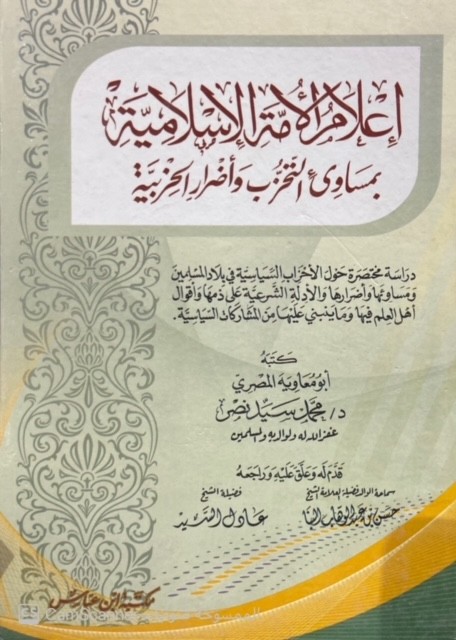 إعلام الأمة الإسلامية
بمساوئ التحزب وأضرار الحزبية
دراسة مختصرة حول الأحزاب السياسية في بلاد المسلمين
ومساوئها وأضرارها والأدلة الشرعية على ذمها وأقوال
أهل العلم فيها وما ينبني عليها من المشاركات السياسية.
كتبه
أبو معاوية المصري
د/ محمد سيد نصر
غفر الله له ولوالديه وللمسلمين
قدم له وعلق عليه وراجعه
سماحة الوالد فضيلة العلامة الشيخ
حسن بن عبد الوهاب البنا
فضيلة الشيخ
عادل السيد
مكتبة ابن عباس